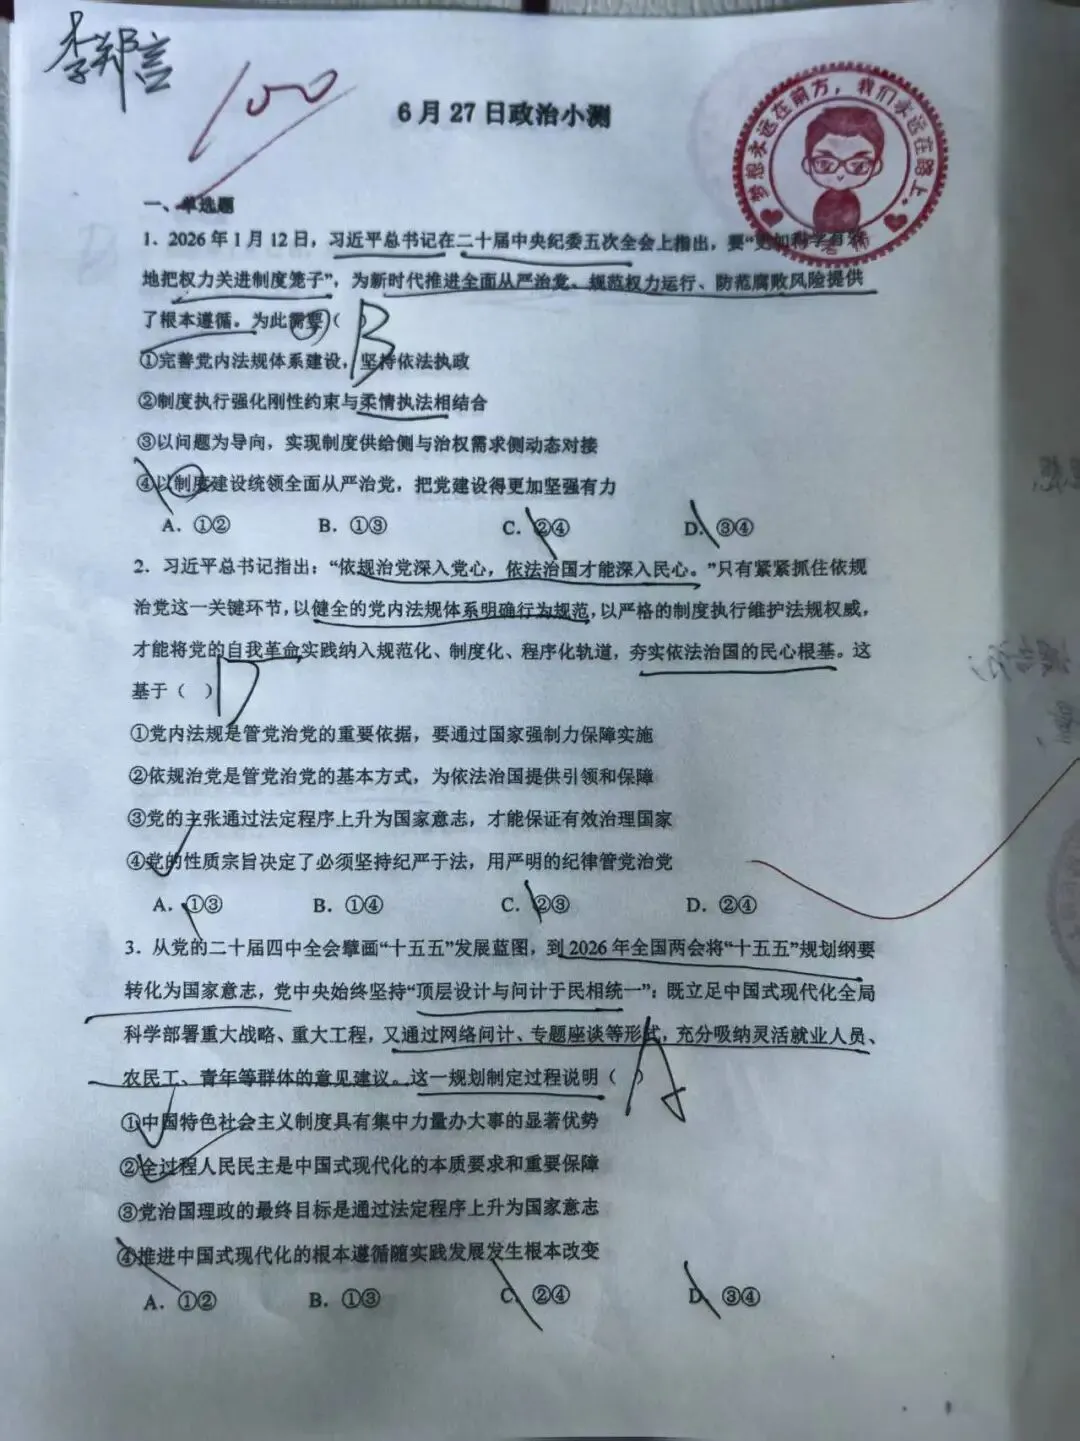 李郑言
100
6月27日政治小测
梦想永远在前方，我们永远在路上。
一、单选题
1．2026年1月12日，习近平总书记在二十届中央纪委五次全会上指出，要“更加科学有效
地把权力关进制度笼子”，为新时代推进全面从严治党、规范权力运行、防范腐败风险提供
了根本遵循。为此需要（ ）
B
①完善党内法规体系建设，坚持依法执政
②制度执行强化刚性约束与柔情执法相结合
③以问题为导向，实现制度供给侧与治权需求侧动态对接
④以制度建设统领全面从严治党，把党建设得更加坚强有力
A．①② B．①③ C．②④ D．③④
2．习近平总书记指出：“依规治党深入党心，依法治国才能深入民心。”只有紧紧抓住依规
治党这一关键环节，以健全的党内法规体系明确行为规范，以严格的制度执行维护法规权威，
才能将党的自我革命实践纳入规范化、制度化、程序化轨道，夯实依法治国的民心根基。这
基于（ ）
D
①党内法规是管党治党的重要依据，要通过国家强制力保障实施
②依规治党是管党治党的基本方式，为依法治国提供引领和保障
③党的主张通过法定程序上升为国家意志，才能保证有效治理国家
④党的性质宗旨决定了必须坚持纪严于法，用严明的纪律管党治党
A．①③ B．①④ C．②③ D．②④
3．从党的二十届四中全会擘画“十五五”发展蓝图，到2026年全国两会将“十五五”规划纲要
转化为国家意志，党中央始终坚持“顶层设计与问计于民相统一”：既立足中国式现代化全局
科学部署重大战略、重大工程，又通过网络问计、专题座谈等形式，充分吸纳灵活就业人员、
农民工、青年等群体的意见建议。这一规划制定过程说明（ ）
A
①中国特色社会主义制度具有集中力量办大事的显著优势
②全过程人民民主是中国式现代化的本质要求和重要保障
③党治国理政的最终目标是通过法定程序上升为国家意志
④推进中国式现代化的根本遵循随实践发展发生根本改变
A．①② B．①③ C．②④ D．③④